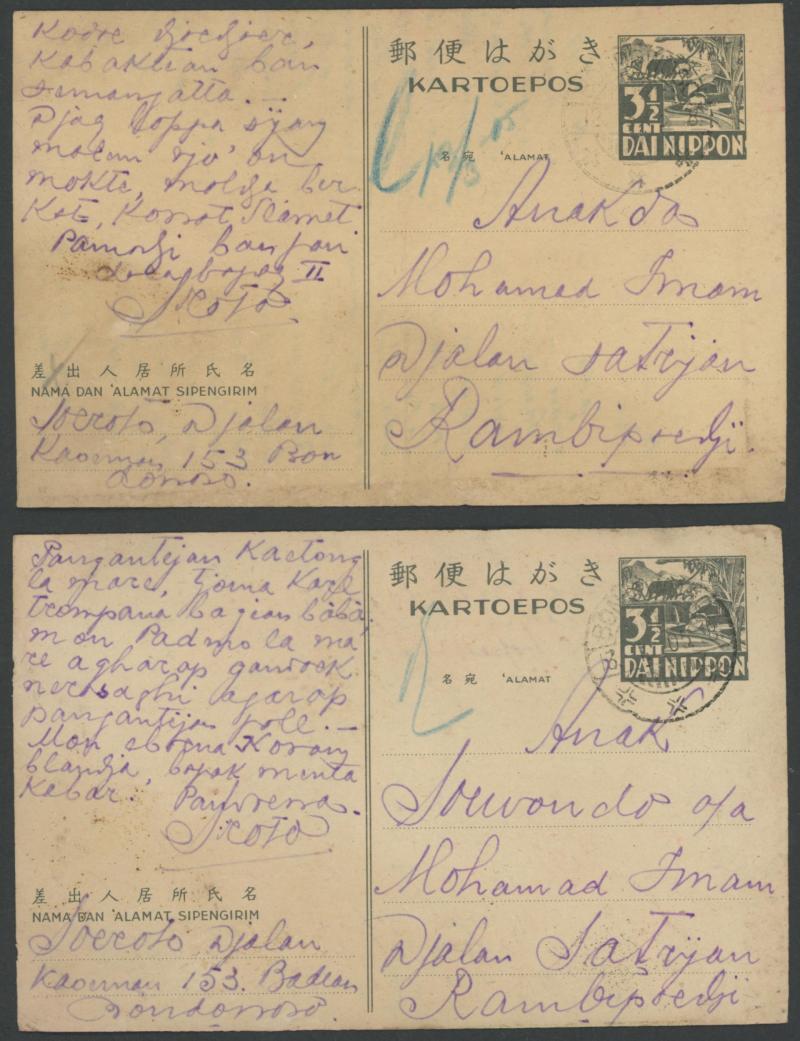 Kodje
Kabaktian ban
semangatta.—
Djag loppa sijang
malem
mokte,
Kat, Korrot Slamet
Pamodji ban pari
II
Skoto
差出人居所氏名
NAMA DAN 'ALAMAT SIPENGIRIM
Soeroto, Djalan
Kaoeman 153 Bon
dowoso.
郵便はがき
KARTOEPOS
3½
CENT
DAI NIPPON
19/3-05
名宛 'ALAMAT
Anakda
Mohamad Imam
Djalan Satrijan
Rambipoedji.
Pangantejan Kaetong
la mare, tjoma Kare
trompana bagian baba,
mon Padmo la ma
re agharap gandoek
ner saghi agarap
pangantijan polé.—
Mon eboena Korang
blandja, bapak menta
Kabar. Pandrena.
Skoto
差出人居所氏名
NAMA DAN 'ALAMAT SIPENGIRIM
Soeroto Djalan
Kaoeman 153. Badean
Bondowoso.
郵便はがき
KARTOEPOS
3½
CENT
DAI NIPPON
名宛 'ALAMAT
Anak
Soewondo o/a
Mohamad Imam
Djalan Satrijan
Rambipoedji.